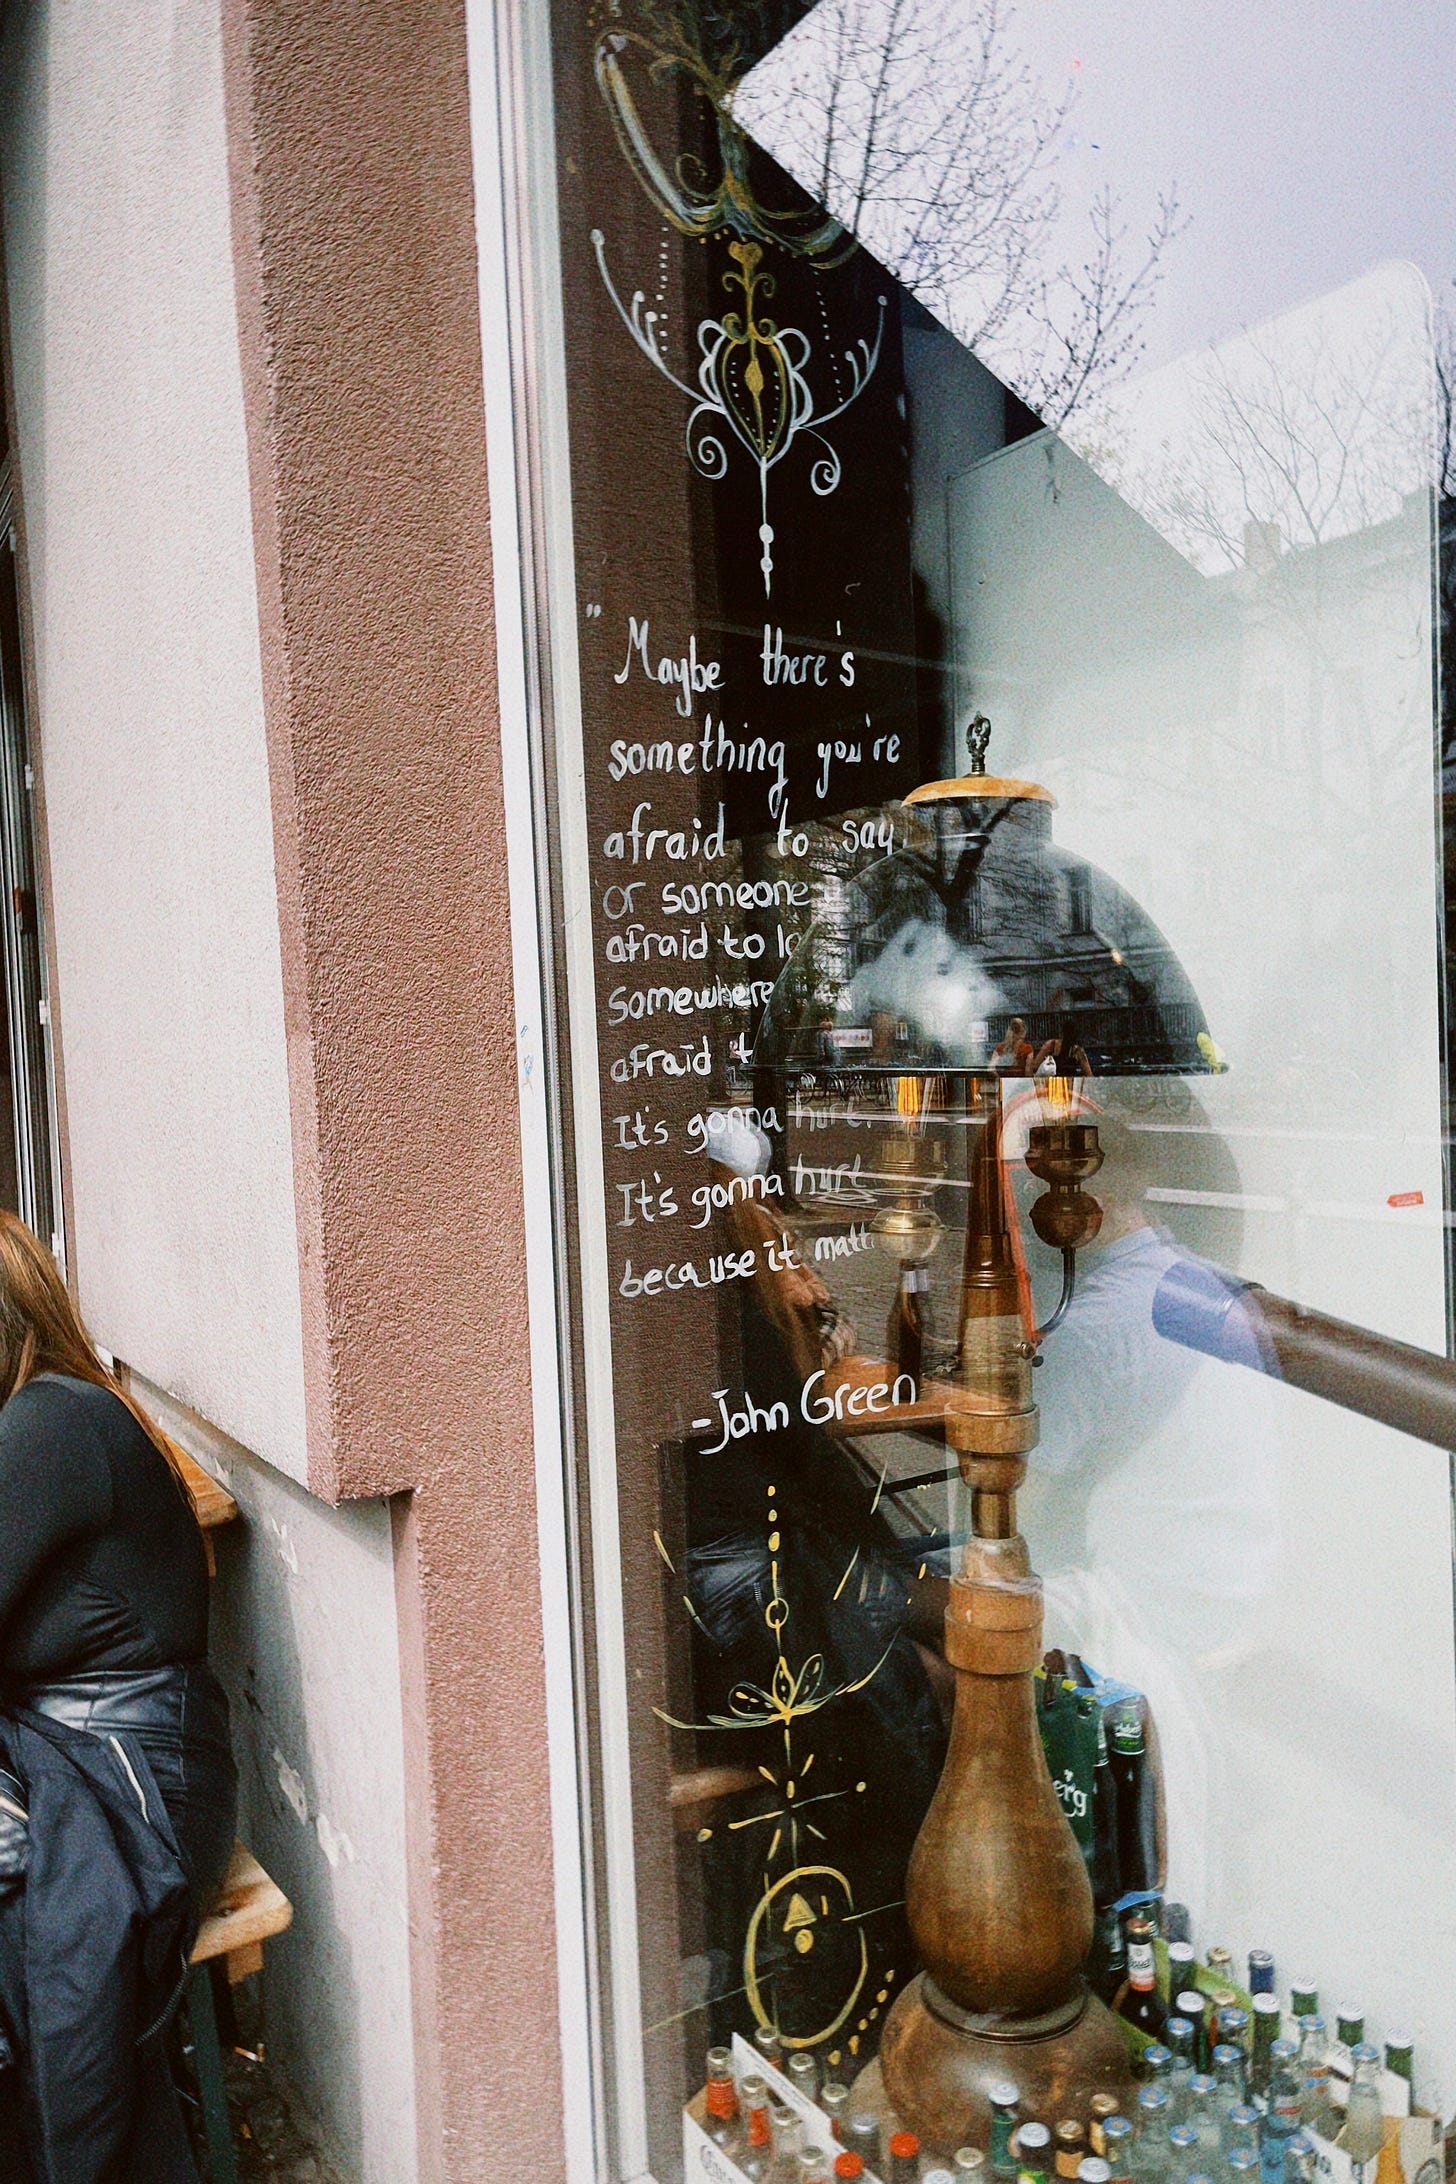 "Maybe there's
something you're
afraid to say
or someone
afraid to lo
somewhere
afraid t
It's gonna hurt.
It's gonna hurt
because it matt
-John Green
erg